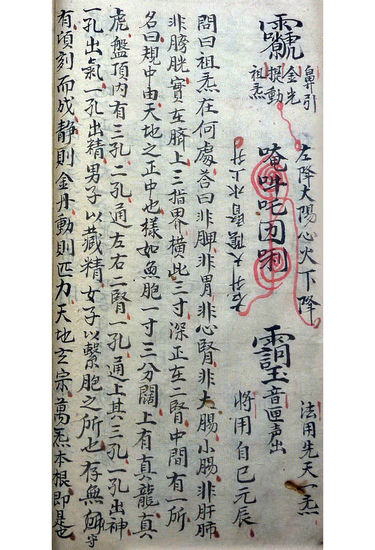 法用先天一炁
將用自己元辰
音匣声出
左降太陽心火下降
右升太陰腎水上升
唵吽吒
鼻引
金光
撰動
祖炁
問曰祖炁在何處荅曰非脾非胃非心腎非大腸小腸非肝肺
非膀胱實在臍上三指界橫此三寸深正在二腎中間有一所
名曰規中由天地之正中也樣如兔胞一寸三分闊上有真龍真
虎盤頂內有三孔二孔通左右二腎一孔通上其三孔一孔出神
一孔出氣一孔出精男子以藏精女子以繫胞之所也存無
守
有頃刻而成靜則金丹動則匹力天地玄宗萬炁本根即是也